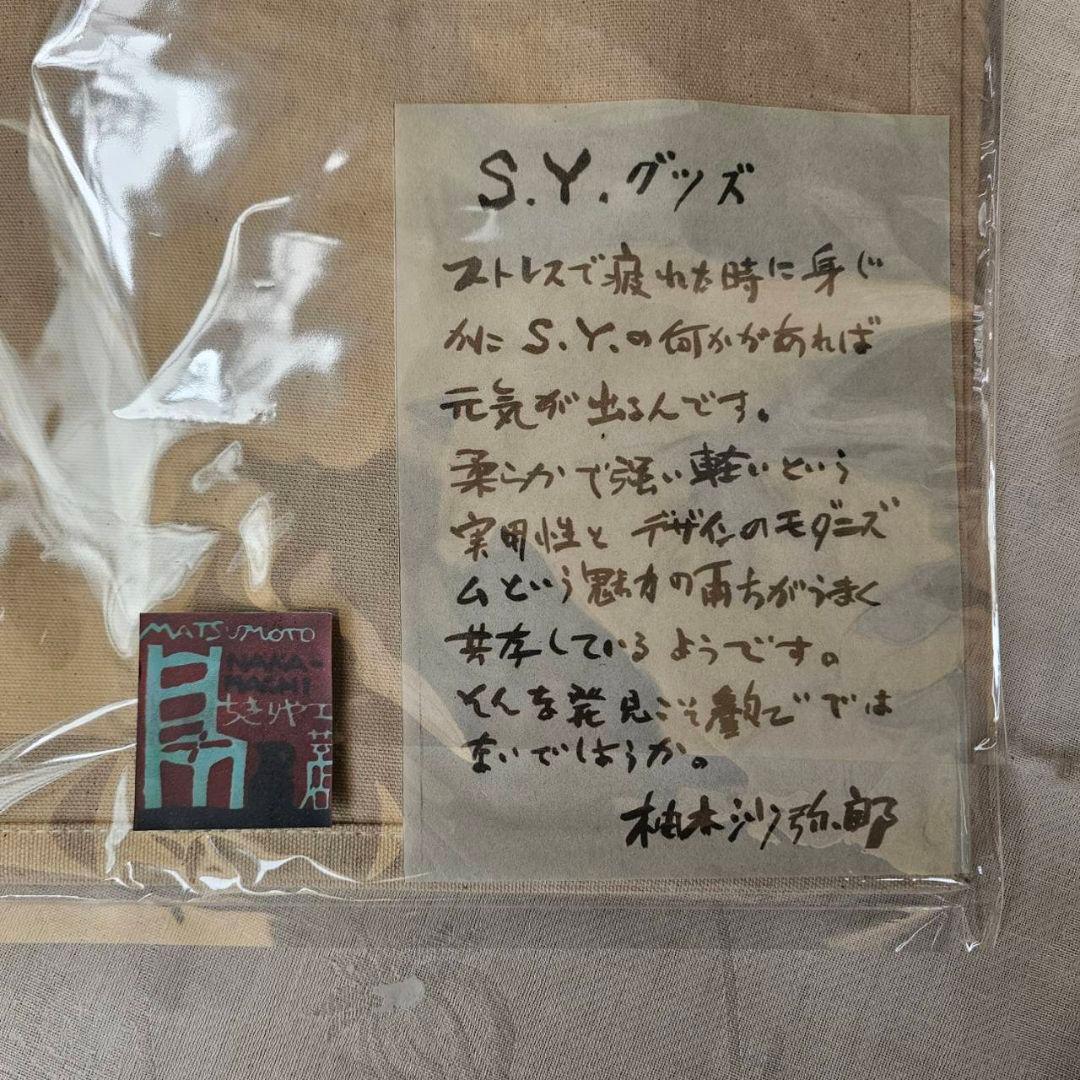 S.Y.グッズ
ストレスで疲れた時に身じ
かに S.Y.の何かがあれば
元気が出るんです。
柔らかで強い軽いという
実用性とデザインのモダニズ
ムという魅力の両方がうまく
共存しているようです。
そんな発見こそ藝術では
ないでしょうか。
柚木沙弥郎
MATSUMOTO
NAKA-
MACHI
ちきりや工
芸店